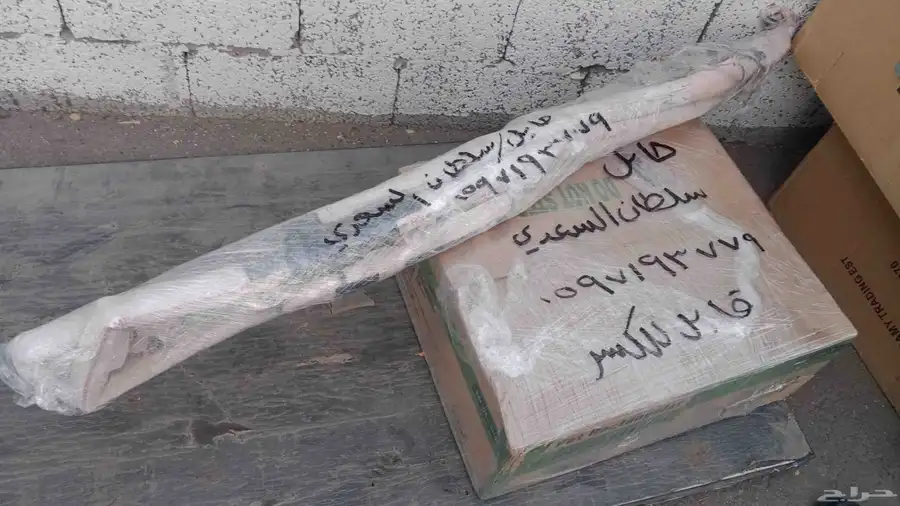 حايل/سلطان السعدي
٠٥٩٧١٩٣٧٧٩
حايل
سلطان السعدي
٠٥٩٧١٩٣٧٧٩
قابل للكسر
AMY TRADING EST
حراج